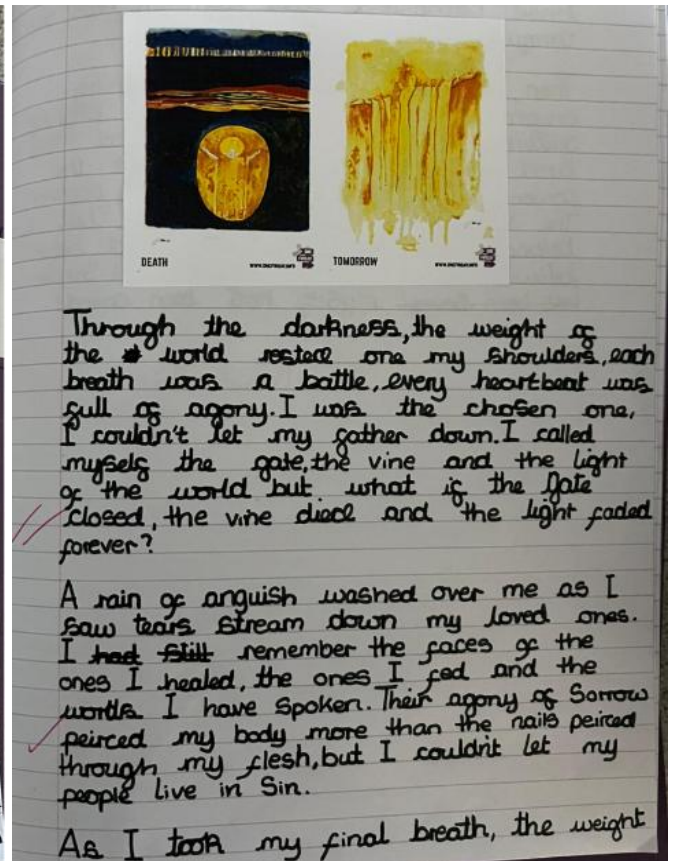 DEATH
WWW.ONETREAM.INFO
TOMORROW
Through the darkness, the weight of
the world rested one my shoulders, each
breath was a battle, every heartbeat was
full of agony. I was the chosen one,
I couldn't let my father down. I called
myself the gate, the vine and the light
of the world but what if the gate
closed, the vine died and the light faded
forever?
A rain of anguish washed over me as I
saw tears stream down my loved ones.
I had still remember the faces of the
ones I healed, the ones I fed and the
words I have spoken. Their agony of Sorrow
peirced my body more than the nails peirced
through my flesh, but I couldn't let my
people live in Sin.
As I took my final breath, the weight